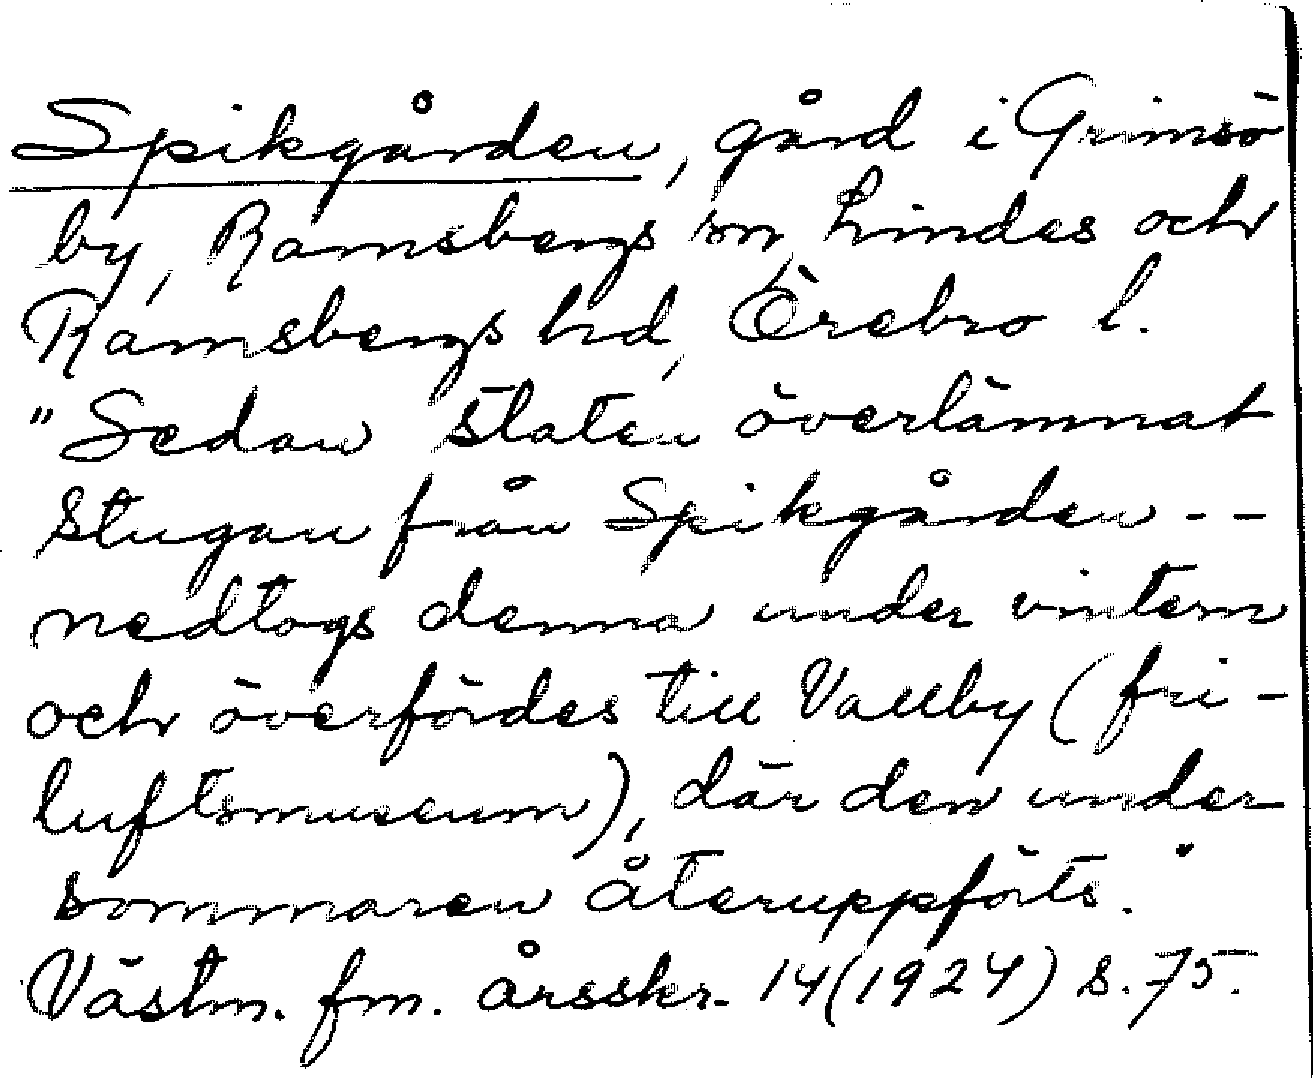 Spikgården, gård i Grimsö
by, Ramsbergs sn, Lindes och
Ramsbergs hd, Örebro l.
"Sedan staten överlämnat
stugan från Spikgården --
nedtogs denna under vintern
och överfördes till Vallby (fri-
luftsmuseum), där den under
sommaren återuppförts."
Västm. fm. årsskr. 14(1924) s. 75.